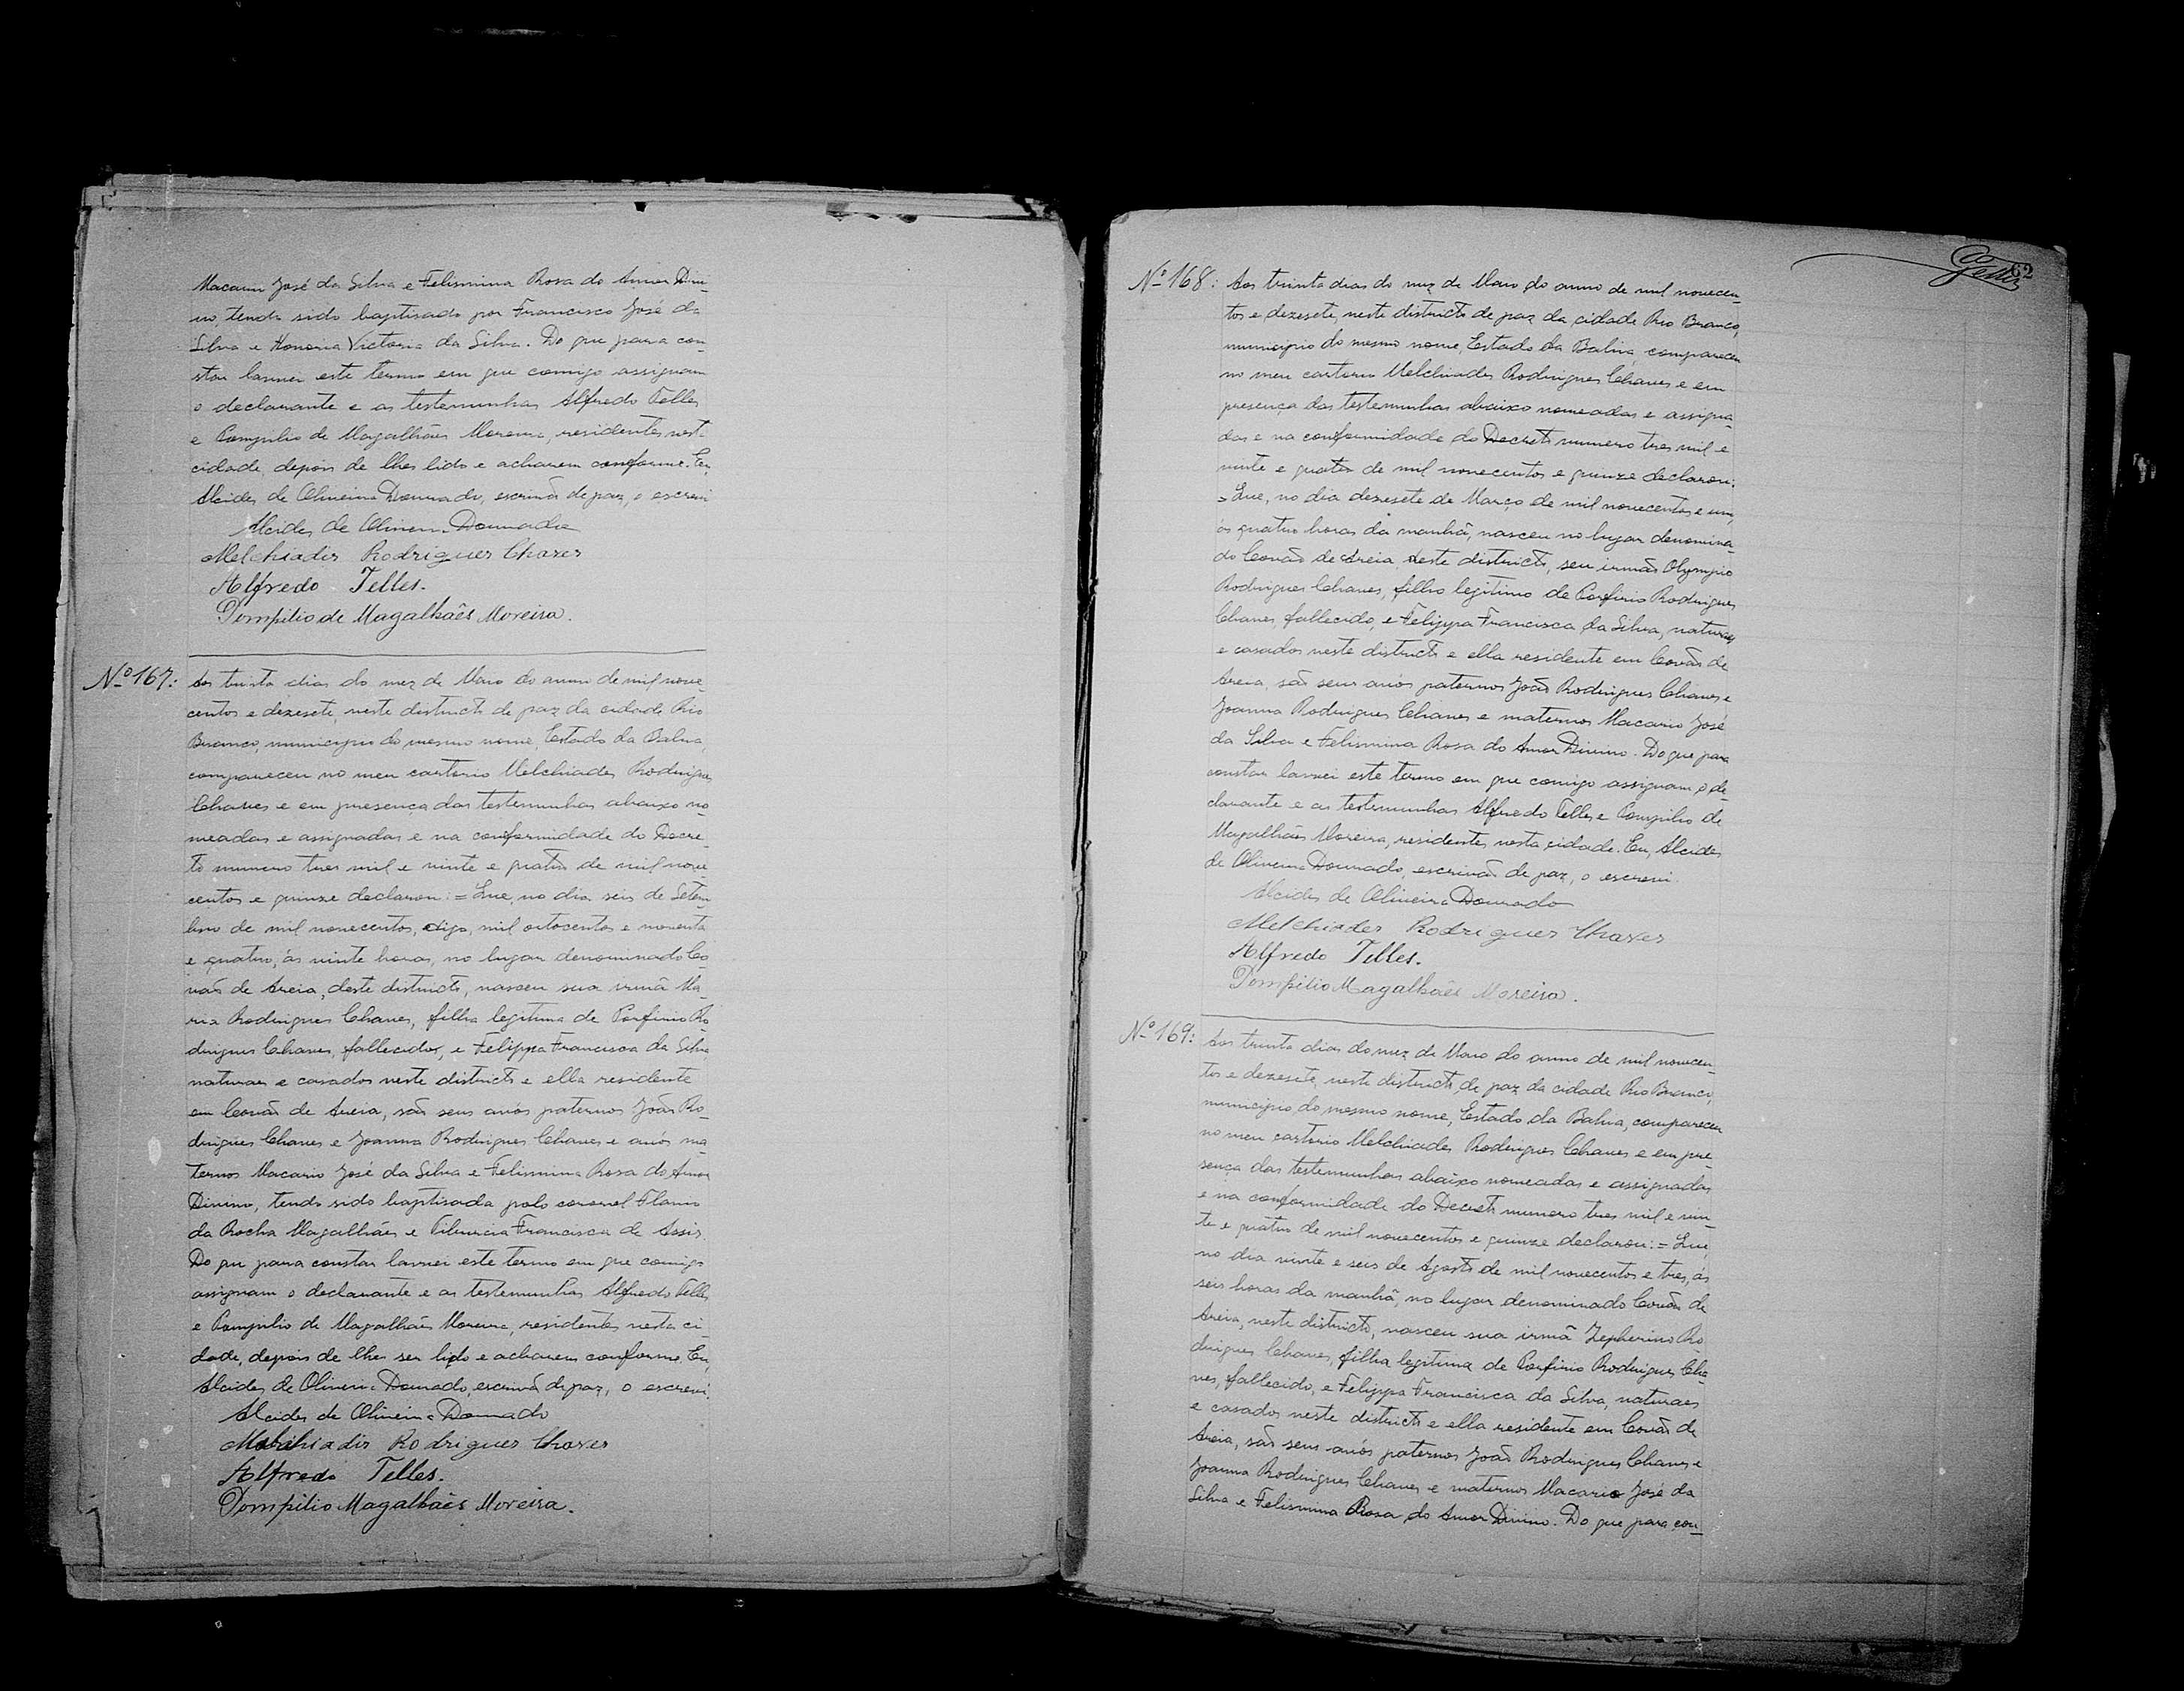 Macario José da Silva e Felismina Rosa do Amor Divi-
no, tendo sido baptisado por Francisco José da
Silva e Honoria Victoria da Silva. Do que para con-
star lavrei este termo em que comigo assignam
o declarante e as testemunhas Alfredo Telles
e Pompilio de Magalhães Moreira, residentes nesta
cidade, depois de lhes lido e acharem conforme. Eu,
Alcides de Oliveira Dourado, escrivão de paz, o escrevi
Alcides de Oliveira Dourado
Melchiades Rodrigues Chaves
Alfredo Telles.
Pompilio de Magalhães Moreira.
Nº 167:
Aos trinta dias do mez de Maio do anno de mil nove-
centos e dezesete, neste districto de paz da cidade Rio
Branco, municipio do mesmo nome, Estado da Bahia,
compareceu no meu cartorio Melchiades Rodrigues
Chaves e em presença das testemunhas abaixo no-
meadas e assignadas e na conformidade do Decre-
to numero tres mil e vinte e quatro de mil nove-
centos e quinze declarou: = Que, no dia seis de Setem-
bro de mil novecentos, digo, mil oitocentos e noventa
e quatro, ás vinte horas, no lugar denominado Co-
vão de Areia, deste districto, nasceu sua irmã Ma-
ria Rodrigues Chaves, filha legitima de Porfirio Ro-
drigues Chaves, fallecido, e Felippa Francisca da Silva,
naturaes e casados neste districto e ella residente
em Covão de Areia, são seus avós paternos João Ro-
drigues Chaves e Joanna Rodrigues Chaves e avós ma-
ternos Macario José da Silva e Felismina Rosa do Amor
Divino, tendo sido baptisada pelo coronel Flavio
da Rocha Magalhães e Francisca de Assis.
Do que para constar lavrei este termo em que comigo
assignam o declarante e as testemunhas Alfredo Telles
e Pompilio de Magalhães Moreira, residentes nesta ci-
dade, depois de lhes ser lido e acharem conforme. Eu,
Alcides de Oliveira Dourado, escrivão de paz, o escrevi.
Alcides de Oliveira Dourado
Melchiades Rodrigues Chaves
Alfredo Telles.
Pompilio Magalhães Moreira.
62
Nº 168:
Aos trinta dias do mez de Maio do anno de mil novecen-
tos e dezesete, neste districto de paz da cidade Rio Branco,
municipio do mesmo nome, Estado da Bahia compareceu
no meu cartorio Melchiades Rodrigues Chaves e em
presença das testemunhas abaixo nomeadas e assigna-
das e na conformidade do Decreto numero tres mil e
vinte e quatro de mil novecentos e quinze declarou:
= Que, no dia dezesete de Março de mil novecentos e um,
ás quatro horas da manhã, nasceu no lugar denomina-
do Covão de Areia, deste districto, seu irmão Olympio
Rodrigues Chaves, filho legitimo de Porfirio Rodrigues
Chaves, fallecido, e Felippa Francisca da Silva, naturaes
e casados neste districto e ella residente em Covão de
Areia, são seus avós paternos João Rodrigues Chaves e
Joanna Rodrigues Chaves e maternos Macario José
da Silva e Felismina Rosa do Amor Divino. Do que para
constar lavrei este termo em que comigo assignam o de-
clarante e as testemunhas Alfredo Telles e Pompilio de
Magalhães Moreira, residentes nesta cidade. Eu, Alcides
de Oliveira Dourado, escrivão de paz, o escrevi.
Alcides de Oliveira Dourado
Melchiades Rodrigues Chaves
Alfredo Telles.
Pompilio Magalhães Moreira.
Nº 169:
Aos trinta dias do mez de Maio do anno de mil novecen-
tos e dezesete, neste districto de paz da cidade Rio Branco,
municipio do mesmo nome, Estado da Bahia, compareceu
no meu cartorio Melchiades Rodrigues Chaves e em pre-
sença das testemunhas abaixo nomeadas e assignadas
e na conformidade do Decreto numero tres mil e vin-
te e quatro de mil novecentos e quinze declarou: = Que,
no dia vinte e seis de Agosto de mil novecentos e tres, ás
seis horas da manhã, no lugar denominado Covão de
Areia, neste districto, nasceu sua irmã Zepherina Ro-
drigues Chaves, filha legitima de Porfirio Rodrigues Cha-
ves, fallecido, e Felippa Francisca da Silva, naturaes
e casados neste districto e ella residente em Covão de
Areia, são seus avós paternos João Rodrigues Chaves e
Joanna Rodrigues Chaves e maternos Macario José da
Silva e Felismina Rosa do Amor Divino. Do que para con-